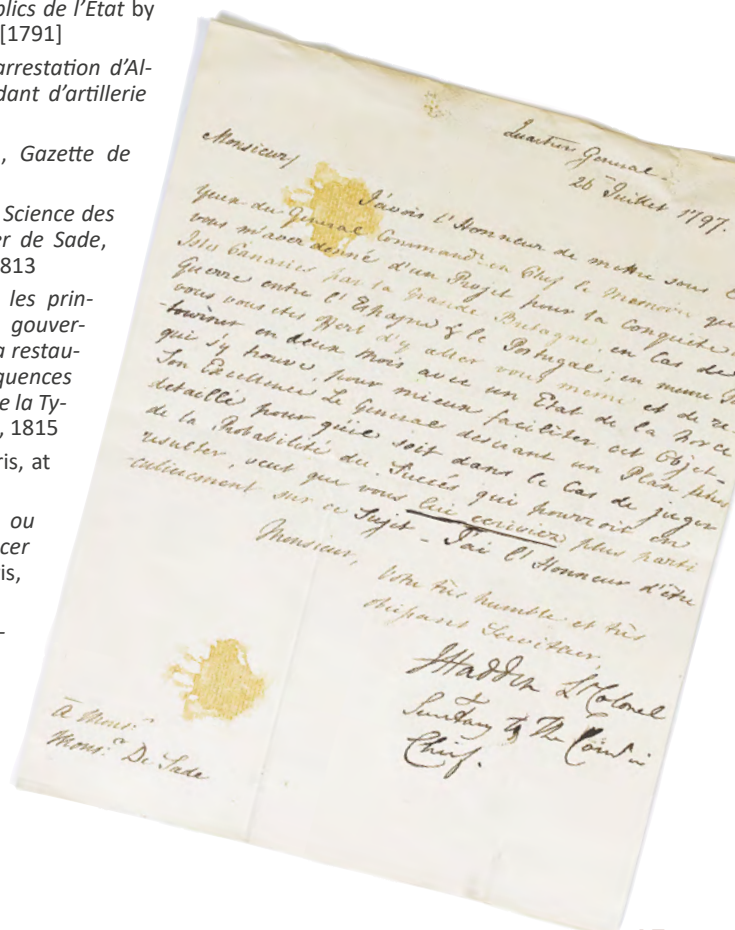 blics de l’Etat by
[1791]
arrestation d’Al-
dant d’artillerie
, Gazette de
Science des
er de Sade,
813
les prin-
gouver-
a restau-
quences
e la Ty-
, 1815
ris, at
ou
cer
is,
-
Quartier General
26 Juillet 1797.
Monsieur,
J'avois l'Honneur de mettre sous
yeux du General Command.t en Chef le Memoire que
vous m'avez donné d'un Projet pour la Conquête
Isles Canaries par la Grande Bretagne, en Cas de
Guerre entre l'Espagne & le Portugal; en meme
vous vous etes offert d'y aller vous meme et de re-
-tourner en deux mois avec un Etat de la Force
qui s'y trouve, pour mieux faciliter cet Objet-
Son Excellence Le General desirant un Plan plus
detaillé pour qu'il soit dans le Cas de juger
de la Probabilité du Succés qui pourroit en
resulter, veut que vous lui ecriviez plus parti
-culierement sur ce Sujet - J'ai l'Honneur d'être
Monsieur,
Votre très humble et très
obeissant Serviteur,
JHadden Lt Colonel
Secretary to The Com.r in
Chief.
à Mons.r
Mons.r De Sade